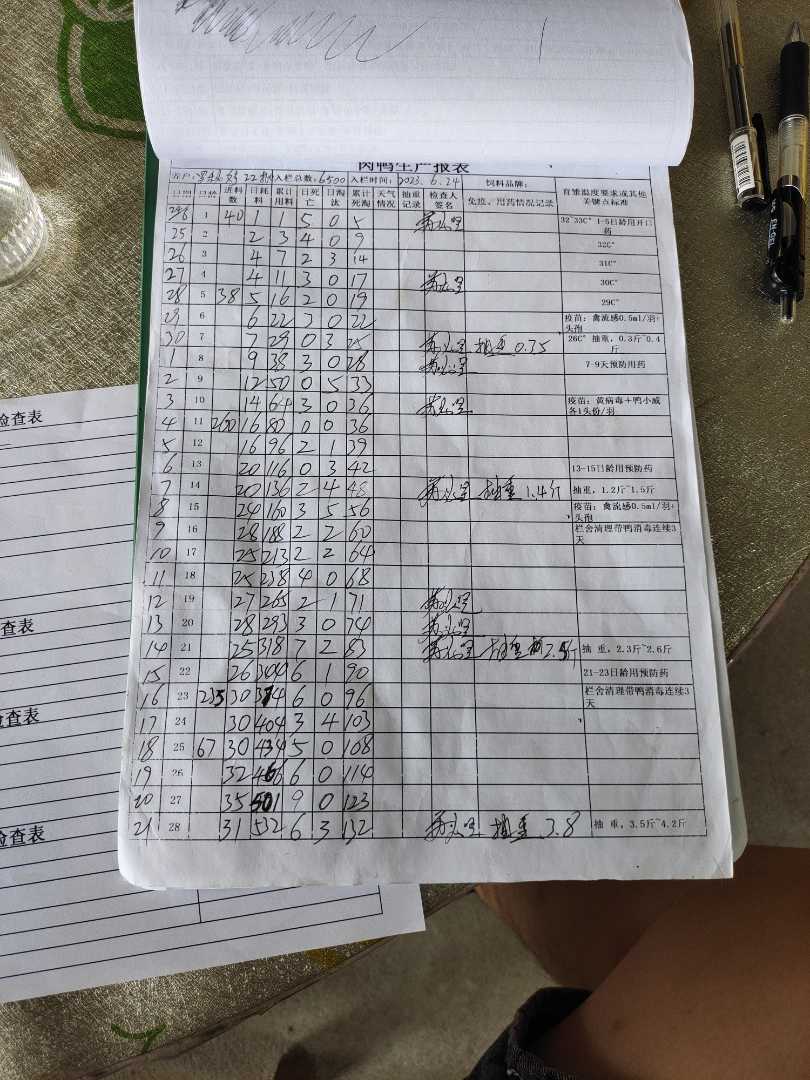 肉鸭生产报表
客户: 22 入栏总数: 6500 入栏时间: 2023. 6. 24 饲料品牌:
日期 日龄 进料数 日耗料 累计用料 日死亡 日淘汰 累计死淘 天气情况 抽重记录 检查人签名 免疫、用药情况记录 育雏温度要求或其他关键点标准
1 40 1 1 5 0 5 32~33C° 1-5日龄用开口药
25 2 2 3 4 0 9 32C°
26 3 4 7 2 3 14 31C°
27 4 4 11 3 0 17 30C°
28 5 38 5 16 2 0 19 29C°
29 6 6 22 3 0 22 疫苗: 禽流感0.5ml/羽+头孢
30 7 7 29 0 3 25 抽重 0.35 26C° 抽重, 0.3斤~0.4斤
1 8 9 38 3 0 28 7-9天预防用药
2 9 12 50 0 5 33
3 10 14 64 3 0 36 疫苗: 黄病毒+鸭小减各1头份/羽
4 11 200 16 80 0 0 36
5 12 16 96 2 1 39
6 13 20 116 0 3 42 13-15日龄用预防药
7 14 20 136 2 4 48 抽重 1.4斤 抽重, 1.2斤~1.5斤
8 15 24 160 3 5 56 疫苗: 禽流感0.5ml/羽+头孢
9 16 28 188 2 2 60 栏舍清理带鸭消毒连续3天
10 17 25 213 2 2 64
11 18 25 238 4 0 68
12 19 27 265 2 1 71
13 20 28 293 3 0 74
14 21 25 318 7 2 83 抽重 2.5斤 抽 重, 2.3斤~2.6斤
15 22 26 344 6 1 90 21-23日龄用预防药
16 23 235 30 374 6 0 96 栏舍清理带鸭消毒连续3天
17 24 30 404 3 4 103
18 25 67 30 434 5 0 108
19 26 32 466 6 0 114
20 27 35 501 9 0 123
21 28 31 532 6 3 132 抽重 3.8 抽 重, 3.5斤~4.2斤
检查表
查表
检查表
检查表